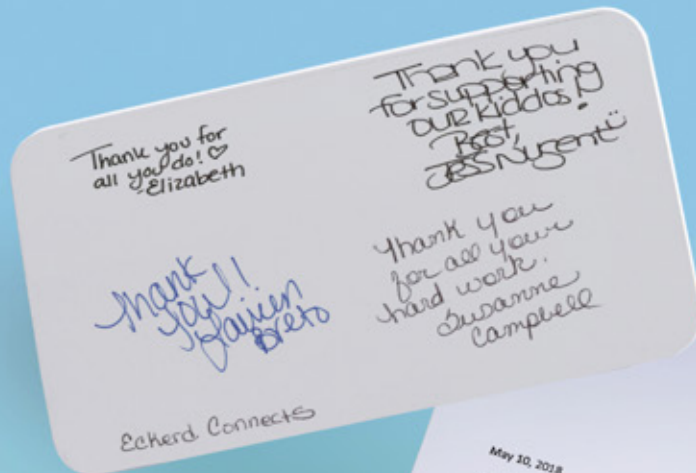 Thank you for
all you do! ♡
-Elizabeth
Thank you
for supporting
our kiddos!
Best,
Jess Nugent
Thank
you!!
Breto
Thank you
for all your
hard work.
Susanne
Campbell
Eckerd Connects
May 10, 2018